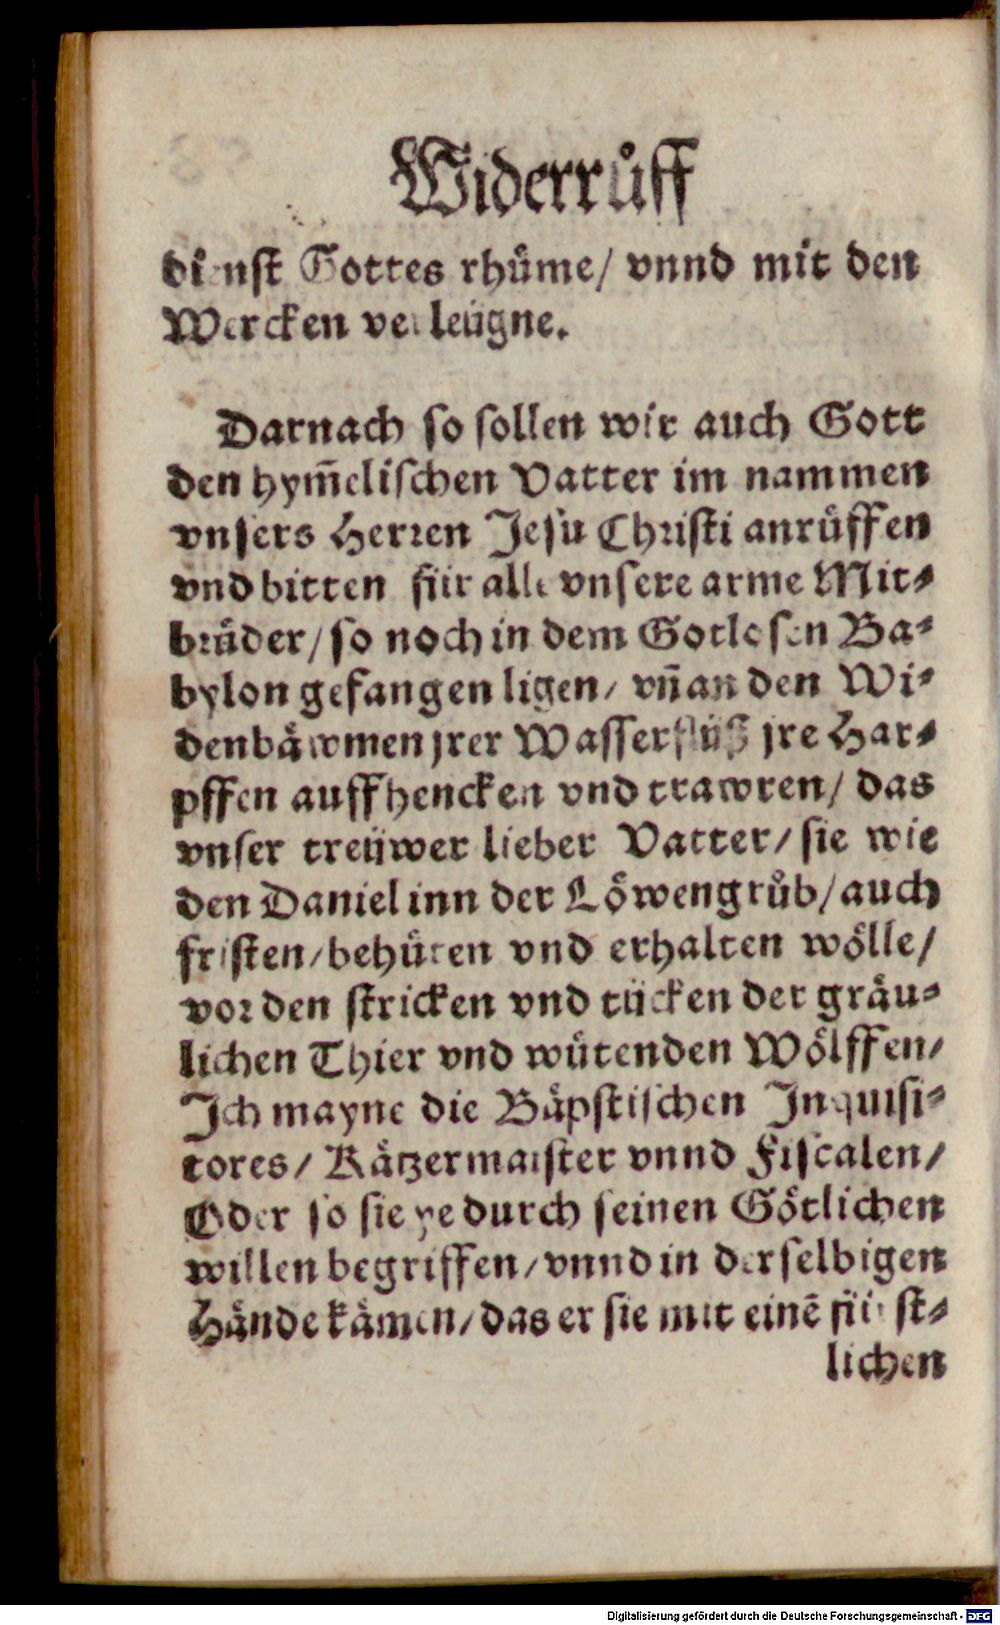 Widerrůff
dienst Gottes rhůme/ vnnd mit den
Wercken verleügne.
Darnach so sollen wir auch Gott
den hym̃elischen Vatter im nammen
vnsers Herren Jesu Christi anrůffen
vnd bitten für alle vnsere arme Mit-
brůder/ so noch in dem Gotlosen Ba-
bylon gefangen ligen/ vñ an den Wi-
denbåwmen jrer Wasserflüß jre Har-
pffen auffhencken vnd trawren/ das
vnser treüwer lieber Vatter/ sie wie
den Daniel inn der Löwengrůb/ auch
fristen/ behůten vnd erhalten wölle/
vor den stricken vnd tücken der gräu-
lichen Thier vnd wůtenden Wölffen/
Ich mayne die Bäpstischen Inquisi-
tores/ Kätzermaister vnnd Fiscalen/
Oder so sie ye durch seinen Götlichen
willen begriffen/ vnnd in derselbigen
Hände kämen/ das er sie mit einẽ fürst-
lichen
Digitalisierung gefördert durch die Deutsche Forschungsgemeinschaft - DFG